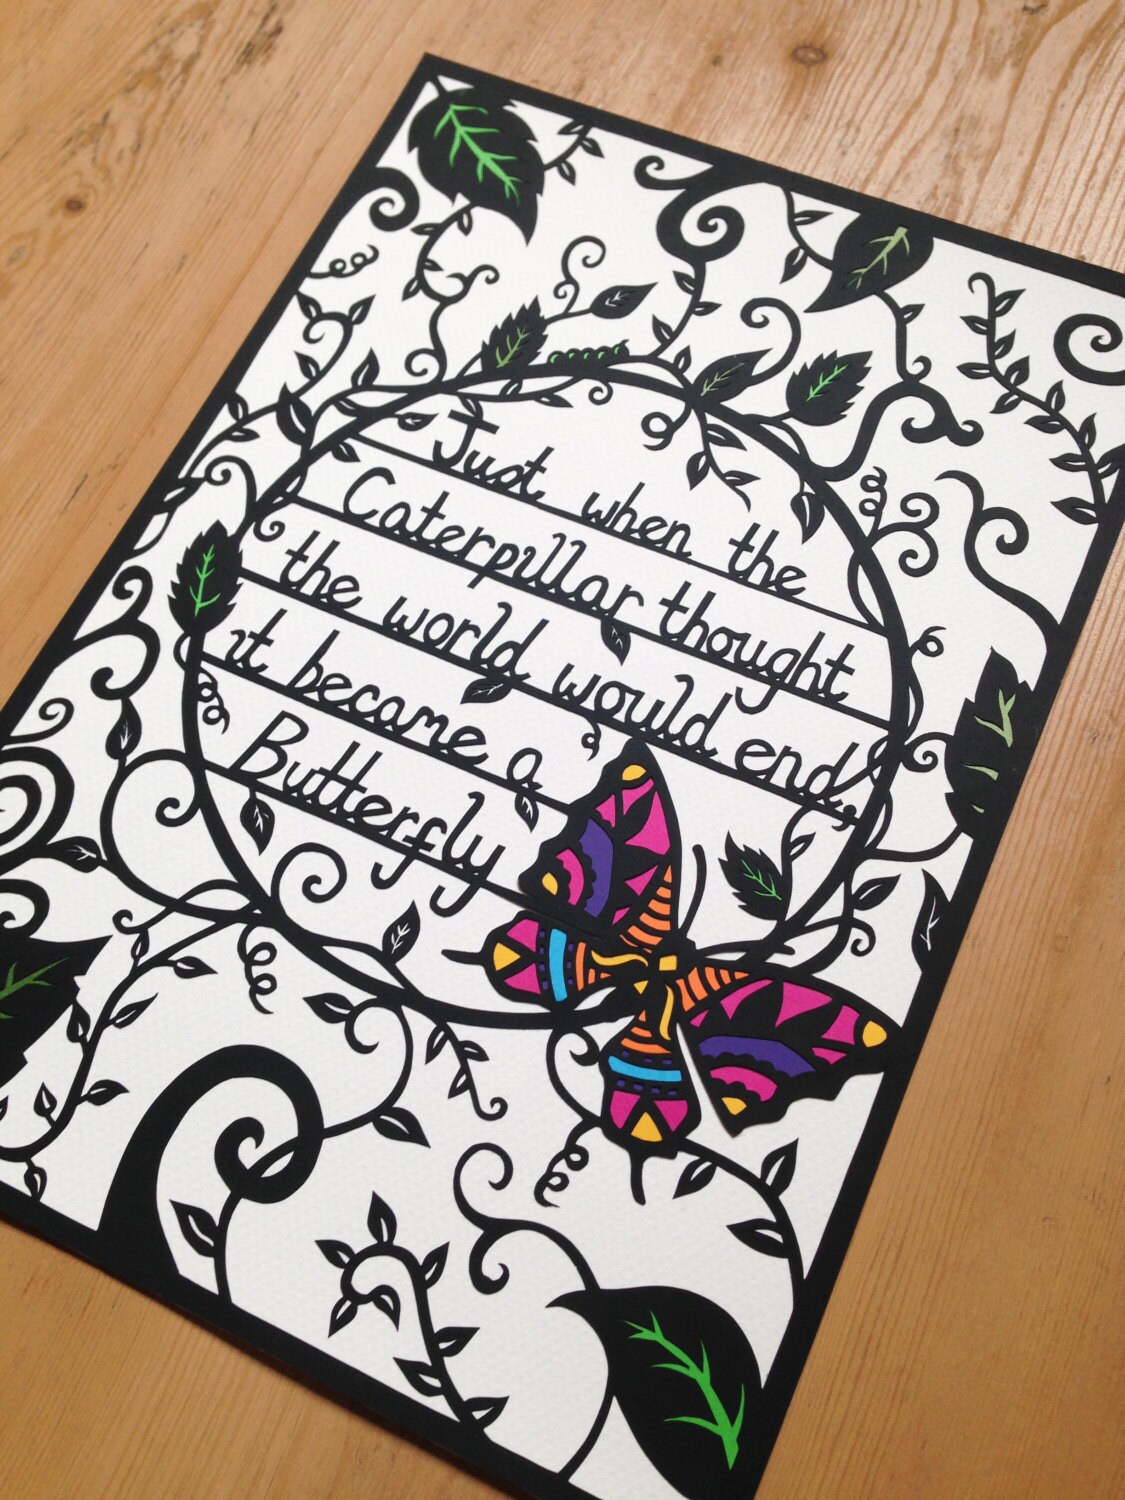 Just when the
Caterpillar thought
the world would end,
it became a
Butterfly